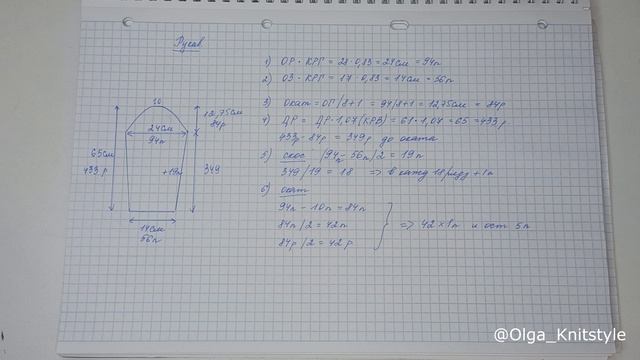 Рукав
1) ОР · КРГ = 28 · 0,83 = 24см = 94п
2) ОЗ · КРГ = 17 · 0,83 = 14см = 56п
3) Окат = ОГ/8+1 = 94/8+1 = 12,75см = 84р
4) ДР = ДР · 1,07 (КРВ) = 61 · 1,07 = 65 = 433р
433р - 84р = 349р до оката
5) скос /94п - 56п/2 = 19п
349/19 = 18 => в кажд 18 ряду +1п
6) окат
94п - 10п = 84п
84п/2 = 42п
84р/2 = 42р
=> 42 х 1п и ост 5п
10
12,75см
84р
24см
94п
65см
433р
+19п
349
14см
56п
@Olga_Knitstyle